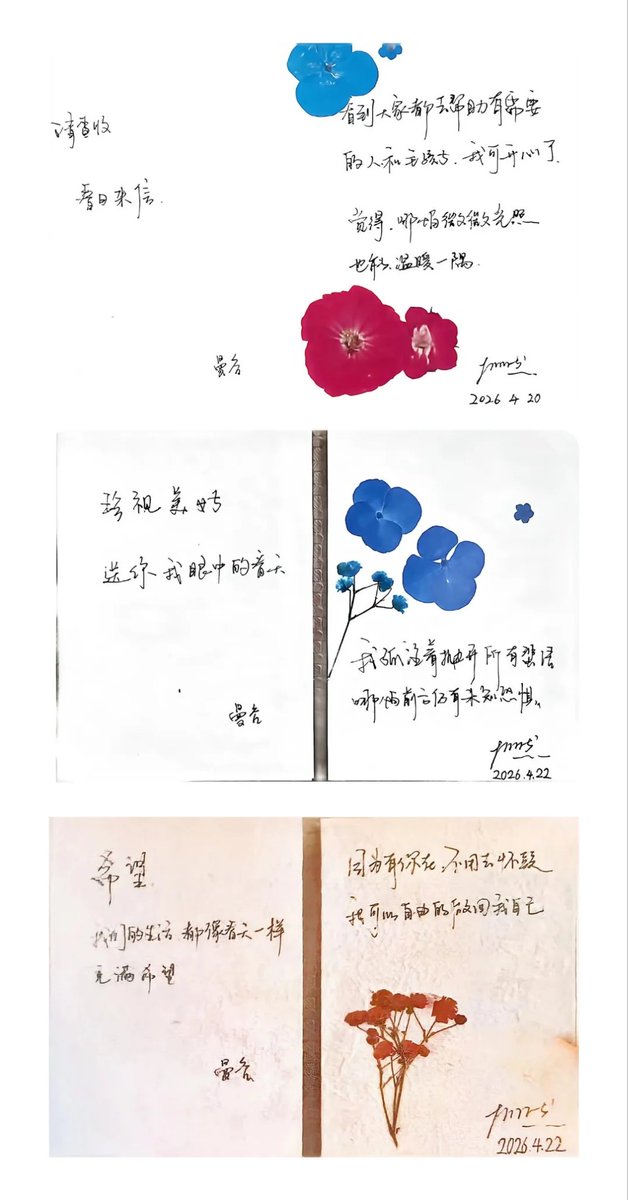 请查收
春日来信.
曼谷
看到大家都去帮助有需要
的人和毛孩子,我可开心了.
觉得,哪怕微微光照
也能温暖一隅.
2026 4 20
珍视美好
送你 我眼中的春天
曼谷
我孤注着抛开所有
哪怕前方仍有未知恐惧。
2026.4.22
希望
我们的生活 都像春天一样
充满希望
曼谷
因为有你在,不用去怀疑
我可以自由的做回我自己
2026.4.22